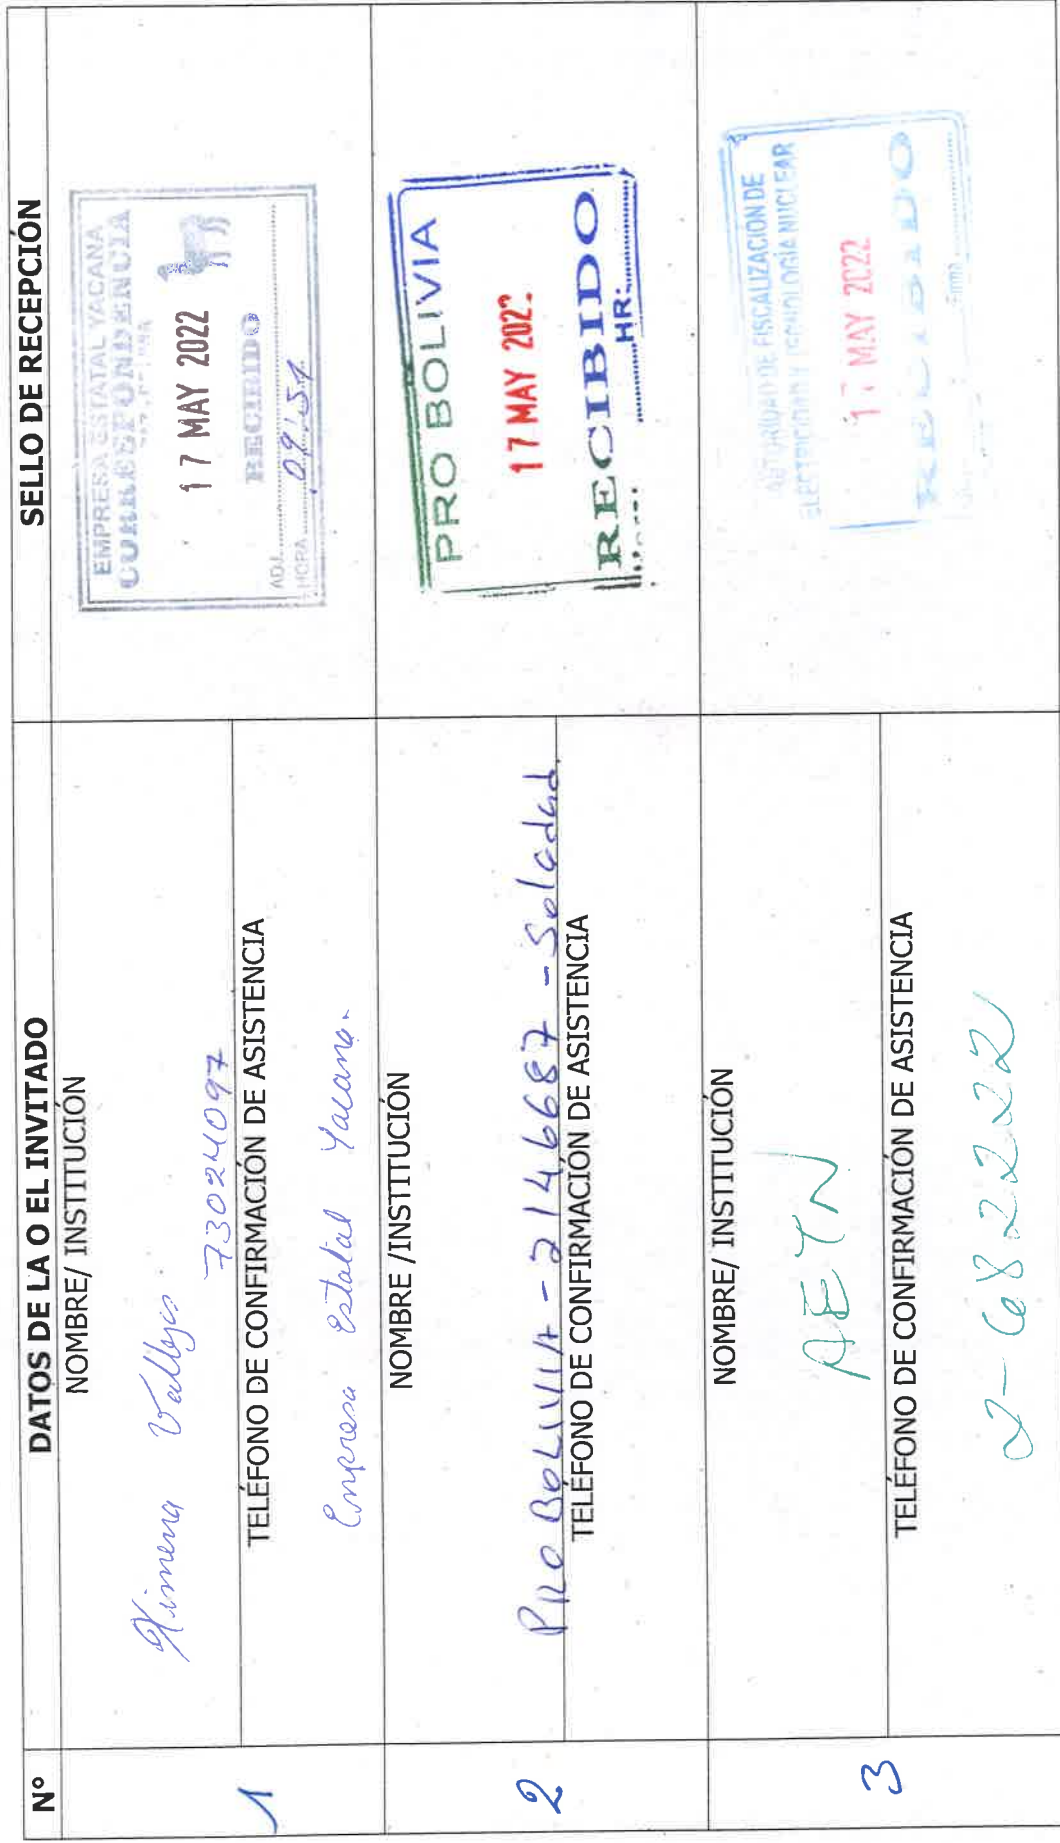 Nº
DATOS DE LA O EL INVITADO
SELLO DE RECEPCIÓN
1
NOMBRE/ INSTITUCIÓN
Ximena Vallejos
73024097
TELÉFONO DE CONFIRMACIÓN DE ASISTENCIA
Empresa Estatal Yacana.
EMPRESA ESTATAL YACANA
CORRESPONDENCIA
17 MAY 2022
RECIBIDO
ADJ.
HORA 09:51
2
NOMBRE /INSTITUCIÓN
PRO BOLIVIA - 2146687 - Soledad.
TELÉFONO DE CONFIRMACIÓN DE ASISTENCIA
PRO BOLIVIA
17 MAY 202
RECIBIDO
HR:
3
NOMBRE/ INSTITUCIÓN
AETN
TELÉFONO DE CONFIRMACIÓN DE ASISTENCIA
2-682222
AUTORIDAD DE FISCALIZACIÓN DE
ELECTRICIDAD Y TECNOLOGÍA NUCLEAR
17 MAY 2022
RECIBIDO
Firma